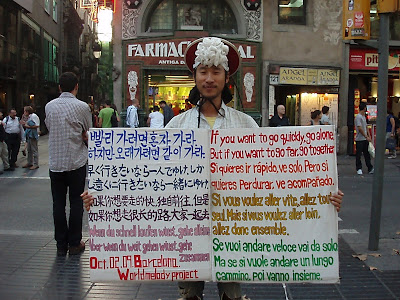 FARMACIA
ANTIGA
ANGEL GRAS
PIT
빨리 가려면 혼자 가라.
하지만 오래가려면 같이 가라.
早く行きたいなら一人でゆけ、しかし
遠くに行きたいなら一緒にゆけ。
如果你想走的快,独自前往,但是
如果你想走很大的路大家一起去
Wenn du schnell laufen willst, gehe alleine
aber wenn du weit gehen willst, gehe
zusammen
Oct. 02. 09 Barcelona
Worldmelody project
If you want to go quickly, go alone,
But if you want to go far, go together
Si quieres ir rápido, ve solo. Pero si
quieres Perdurar, ve acompañado.
Si vous voulez aller vite, allez tout
seul. Mais si vous voulez aller loin,
allez donc ensemble.
Se vuoi andare veloce vai da solo
Ma se si vuole andare un lungo
cammino, poi vanno insieme.